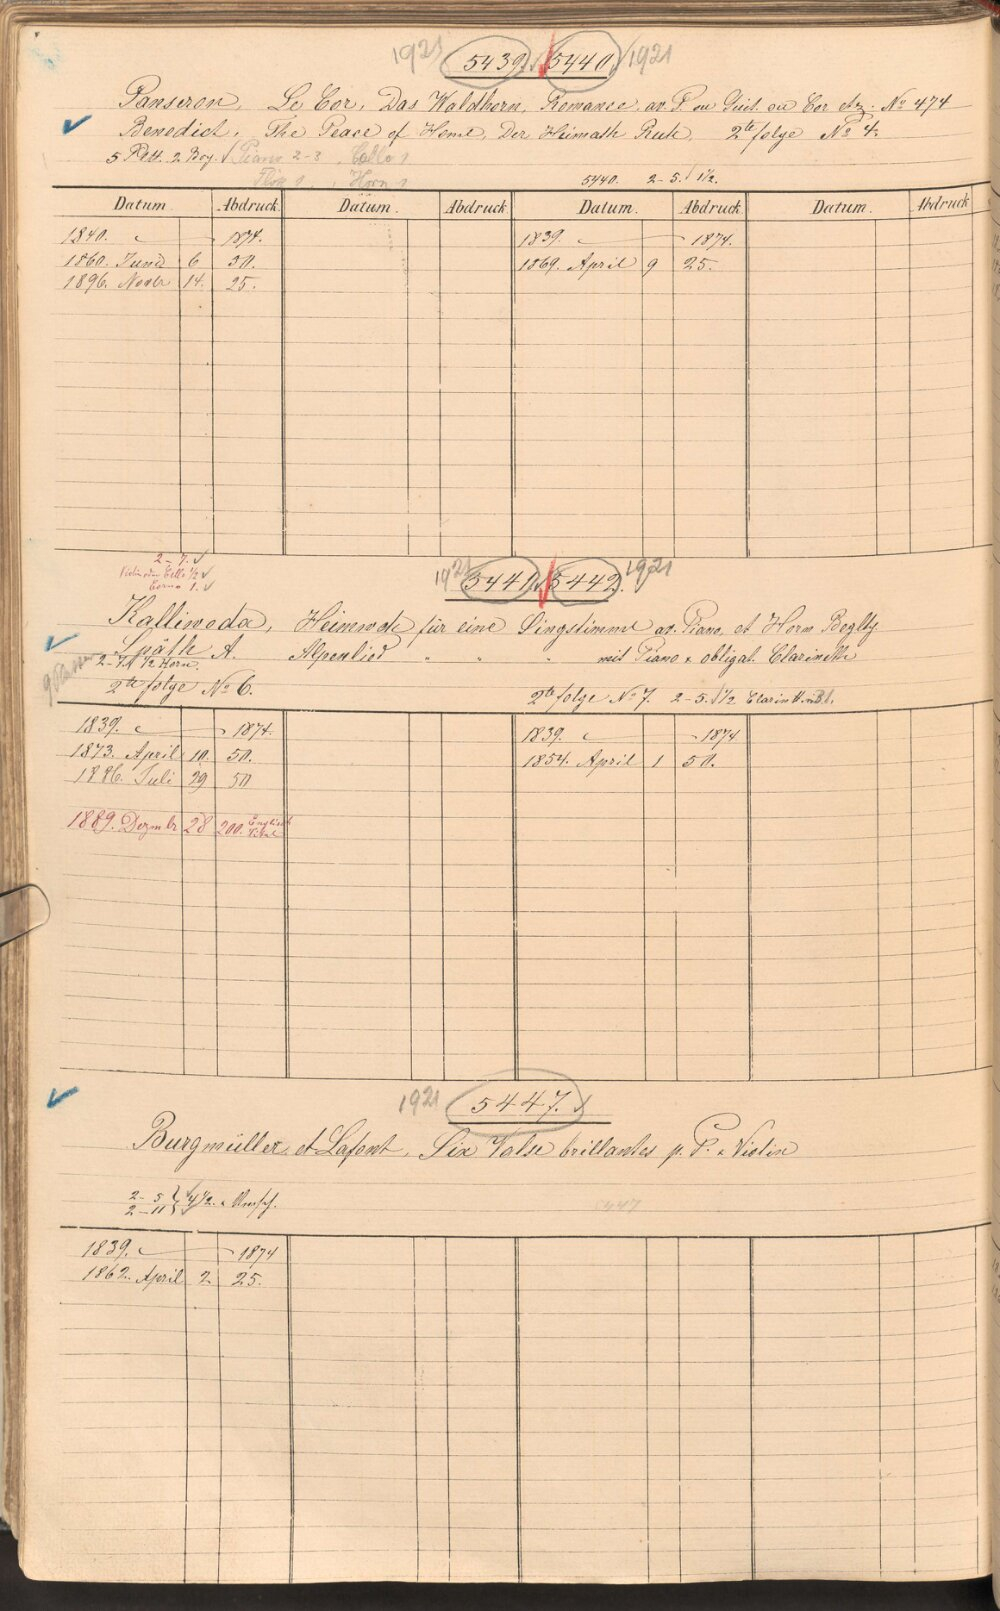 1921 5439. 5440. 1921
Panseron, Le Cor, Das Waldhorn, Romance av. P. ou Guit. ou Cor etz. No 474
Benedict, The Peace of Home, Der Heimath Ruh, 2te folge No 4.
5 Platt. 2 Bog. Piano 2-3, Cello 1
Horn 1
5440. 2-5. 1½.
Datum. Abdruck Datum. Abdruck Datum. Abdruck Datum. Abdruck
1840. 1874. 1839. 1874.
1860. Junis 6 30. 1869. April 9 25.
1896. Novbr 14. 25.
2-7. √
Violin oder Cello ½ √
Corno 1. √
1921 5441. 5442. 1921
Kalliwoda, Heimweh für eine Singstimme av. Piano, et Horn Begltg.
Späth A. Alpenlied " " " mit Piano & obligat. Clarinette
2-7. 1½ Horn.
2te folge No 6. 2te folge No 7. 2-5. 1½ Clarinett
1839. 1874. 1839. 1874
1873. April 10. 50. 1854. April 1 50.
1886. Juli 29 50
1889. Dezmbr 28 200. Englisch
Titel
1921 5447.
Burgmüller, et Lafont, Six Valse brillantes p. P. & Violin
2-5
2-11 4½. & Umsch.
5447
1839. 1874
1862. April 2 25.